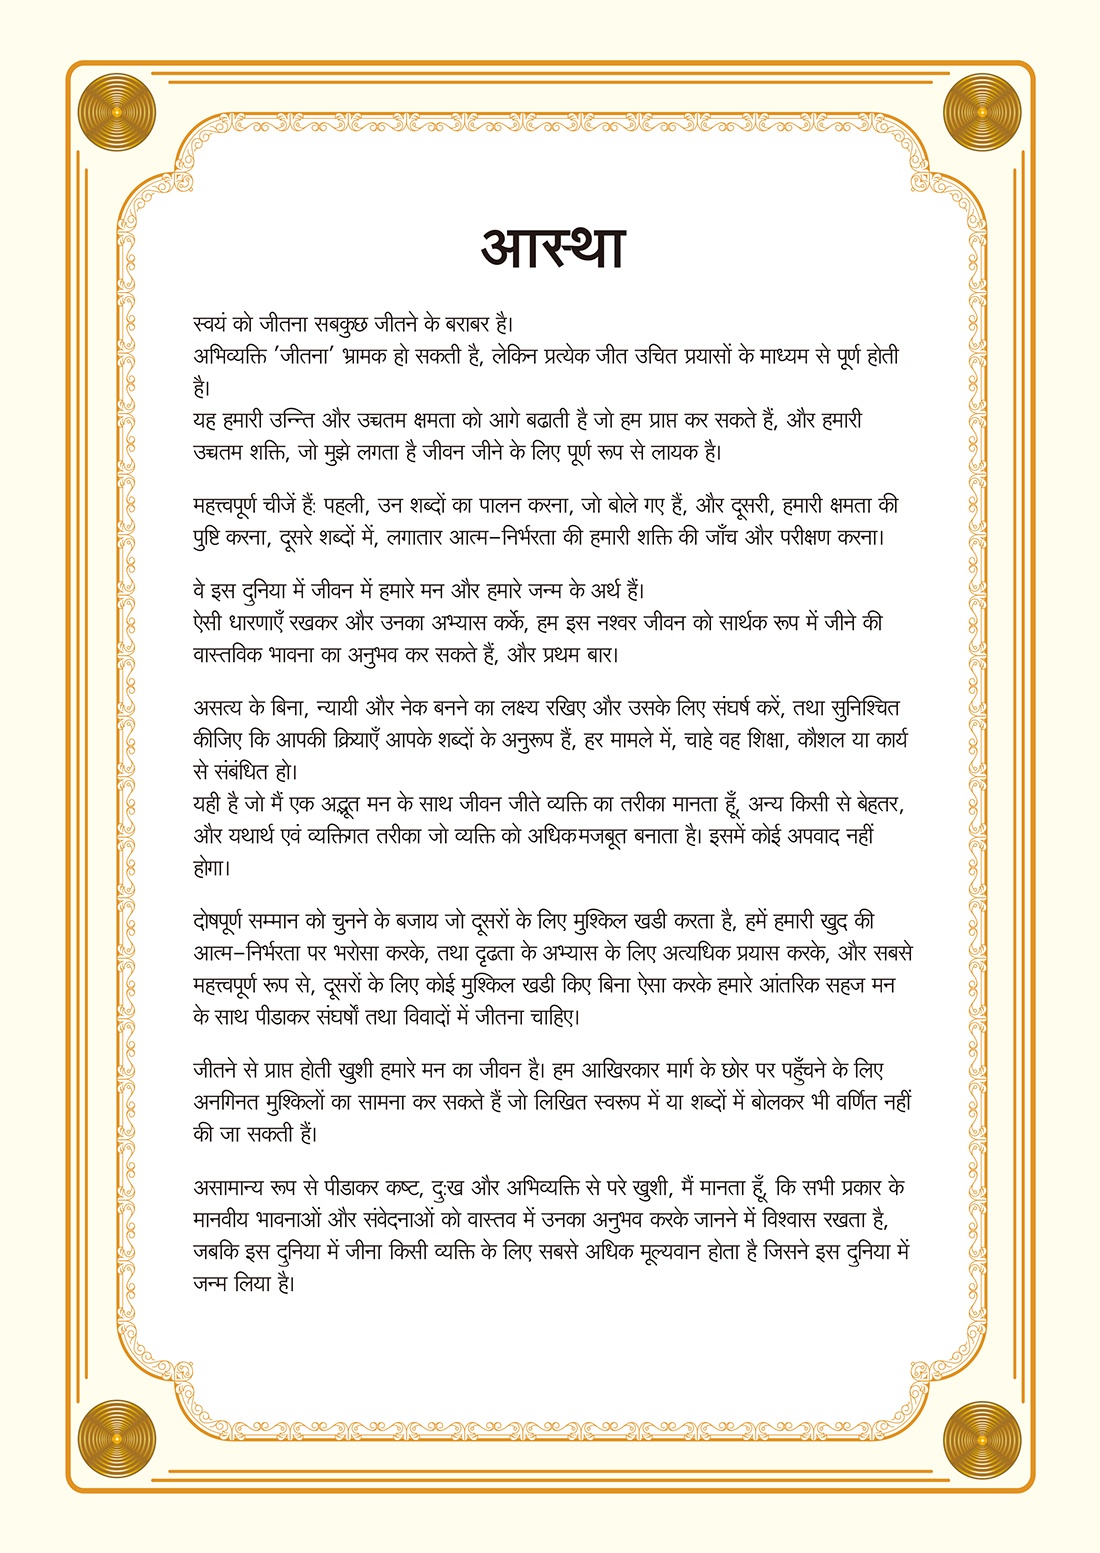 आस्था
स्वयं को जीतना सबकुछ जीतने के बराबर है।
अभिव्यक्ति ’जीतना’ भ्रामक हो सकती है, लेकिन प्रत्येक जीत उचित प्रयासों के माध्यम से पूर्ण होती
है।
यह हमारी उन्न्ति और उच्चतम क्षमता को आगे बढाती है जो हम प्राप्त कर सकते हैं, और हमारी
उच्चतम शक्ति, जो मुझे लगता है जीवन जीने के लिए पूर्ण रूप से लायक है।
महत्त्वपूर्ण चीजें हैं: पहली, उन शब्दों का पालन करना, जो बोले गए हैं, और दूसरी, हमारी क्षमता की
पुष्टि करना, दूसरे शब्दों में, लगातार आत्म–निर्भरता की हमारी शक्ति की जाँच और परीक्षण करना।
वे इस दुनिया में जीवन में हमारे मन और हमारे जन्म के अर्थ हैं।
ऐसी धारणाएँ रखकर और उनका अभ्यास कर्के, हम इस नश्वर जीवन को सार्थक रूप में जीने की
वास्तविक भावना का अनुभव कर सकते हैं, और प्रथम बार।
असत्य के बिना, न्यायी और नेक बनने का लक्ष्य रखिए और उसके लिए संघर्ष करें, तथा सुनिश्चित
कीजिए कि आपकी क्रियाएँ आपके शब्दों के अनुरूप हैं, हर मामले में, चाहे वह शिक्षा, कौशल या कार्य
से संबंधित हो।
यही है जो मैं एक अद्भूत मन के साथ जीवन जीते व्यक्ति का तरीका मानता हूँ, अन्य किसी से बेहतर,
और यथार्थ एवं व्यक्तिगत तरीका जो व्यक्ति को अधिकमजबूत बनाता है। इसमें कोई अपवाद नहीं
होगा।
दोषपूर्ण सम्मान को चुनने के बजाय जो दूसरों के लिए मुश्किल खडी करता है, हमें हमारी खुद की
आत्म–निर्भरता पर भरोसा करके, तथा दृढता के अभ्यास के लिए अत्यधिक प्रयास करके, और सबसे
महत्त्वपूर्ण रूप से, दूसरों के लिए कोई मुश्किल खडी किए बिना ऐसा करके हमारे आंतरिक सहज मन
के साथ पीडाकर संघर्षों तथा विवादों में जीतना चाहिए।
जीतने से प्राप्त होती खुशी हमारे मन का जीवन है। हम आखिरकार मार्ग के छोर पर पहुँचने के लिए
अनगिनत मुश्किलों का सामना कर सकते हैं जो लिखित स्वरूप में या शब्दों में बोलकर भी वर्णित नहीं
की जा सकती हैं।
असामान्य रूप से पीडाकर कष्ट, दुःख और अभिव्यक्ति से परे खुशी, मैं मानता हूँ, कि सभी प्रकार के
मानवीय भावनाओं और संवेदनाओं को वास्तव में उनका अनुभव करके जानने में विश्वास रखता है,
जबकि इस दुनिया में जीना किसी व्यक्ति के लिए सबसे अधिक मूल्यवान होता है जिसने इस दुनिया में
जन्म लिया है।